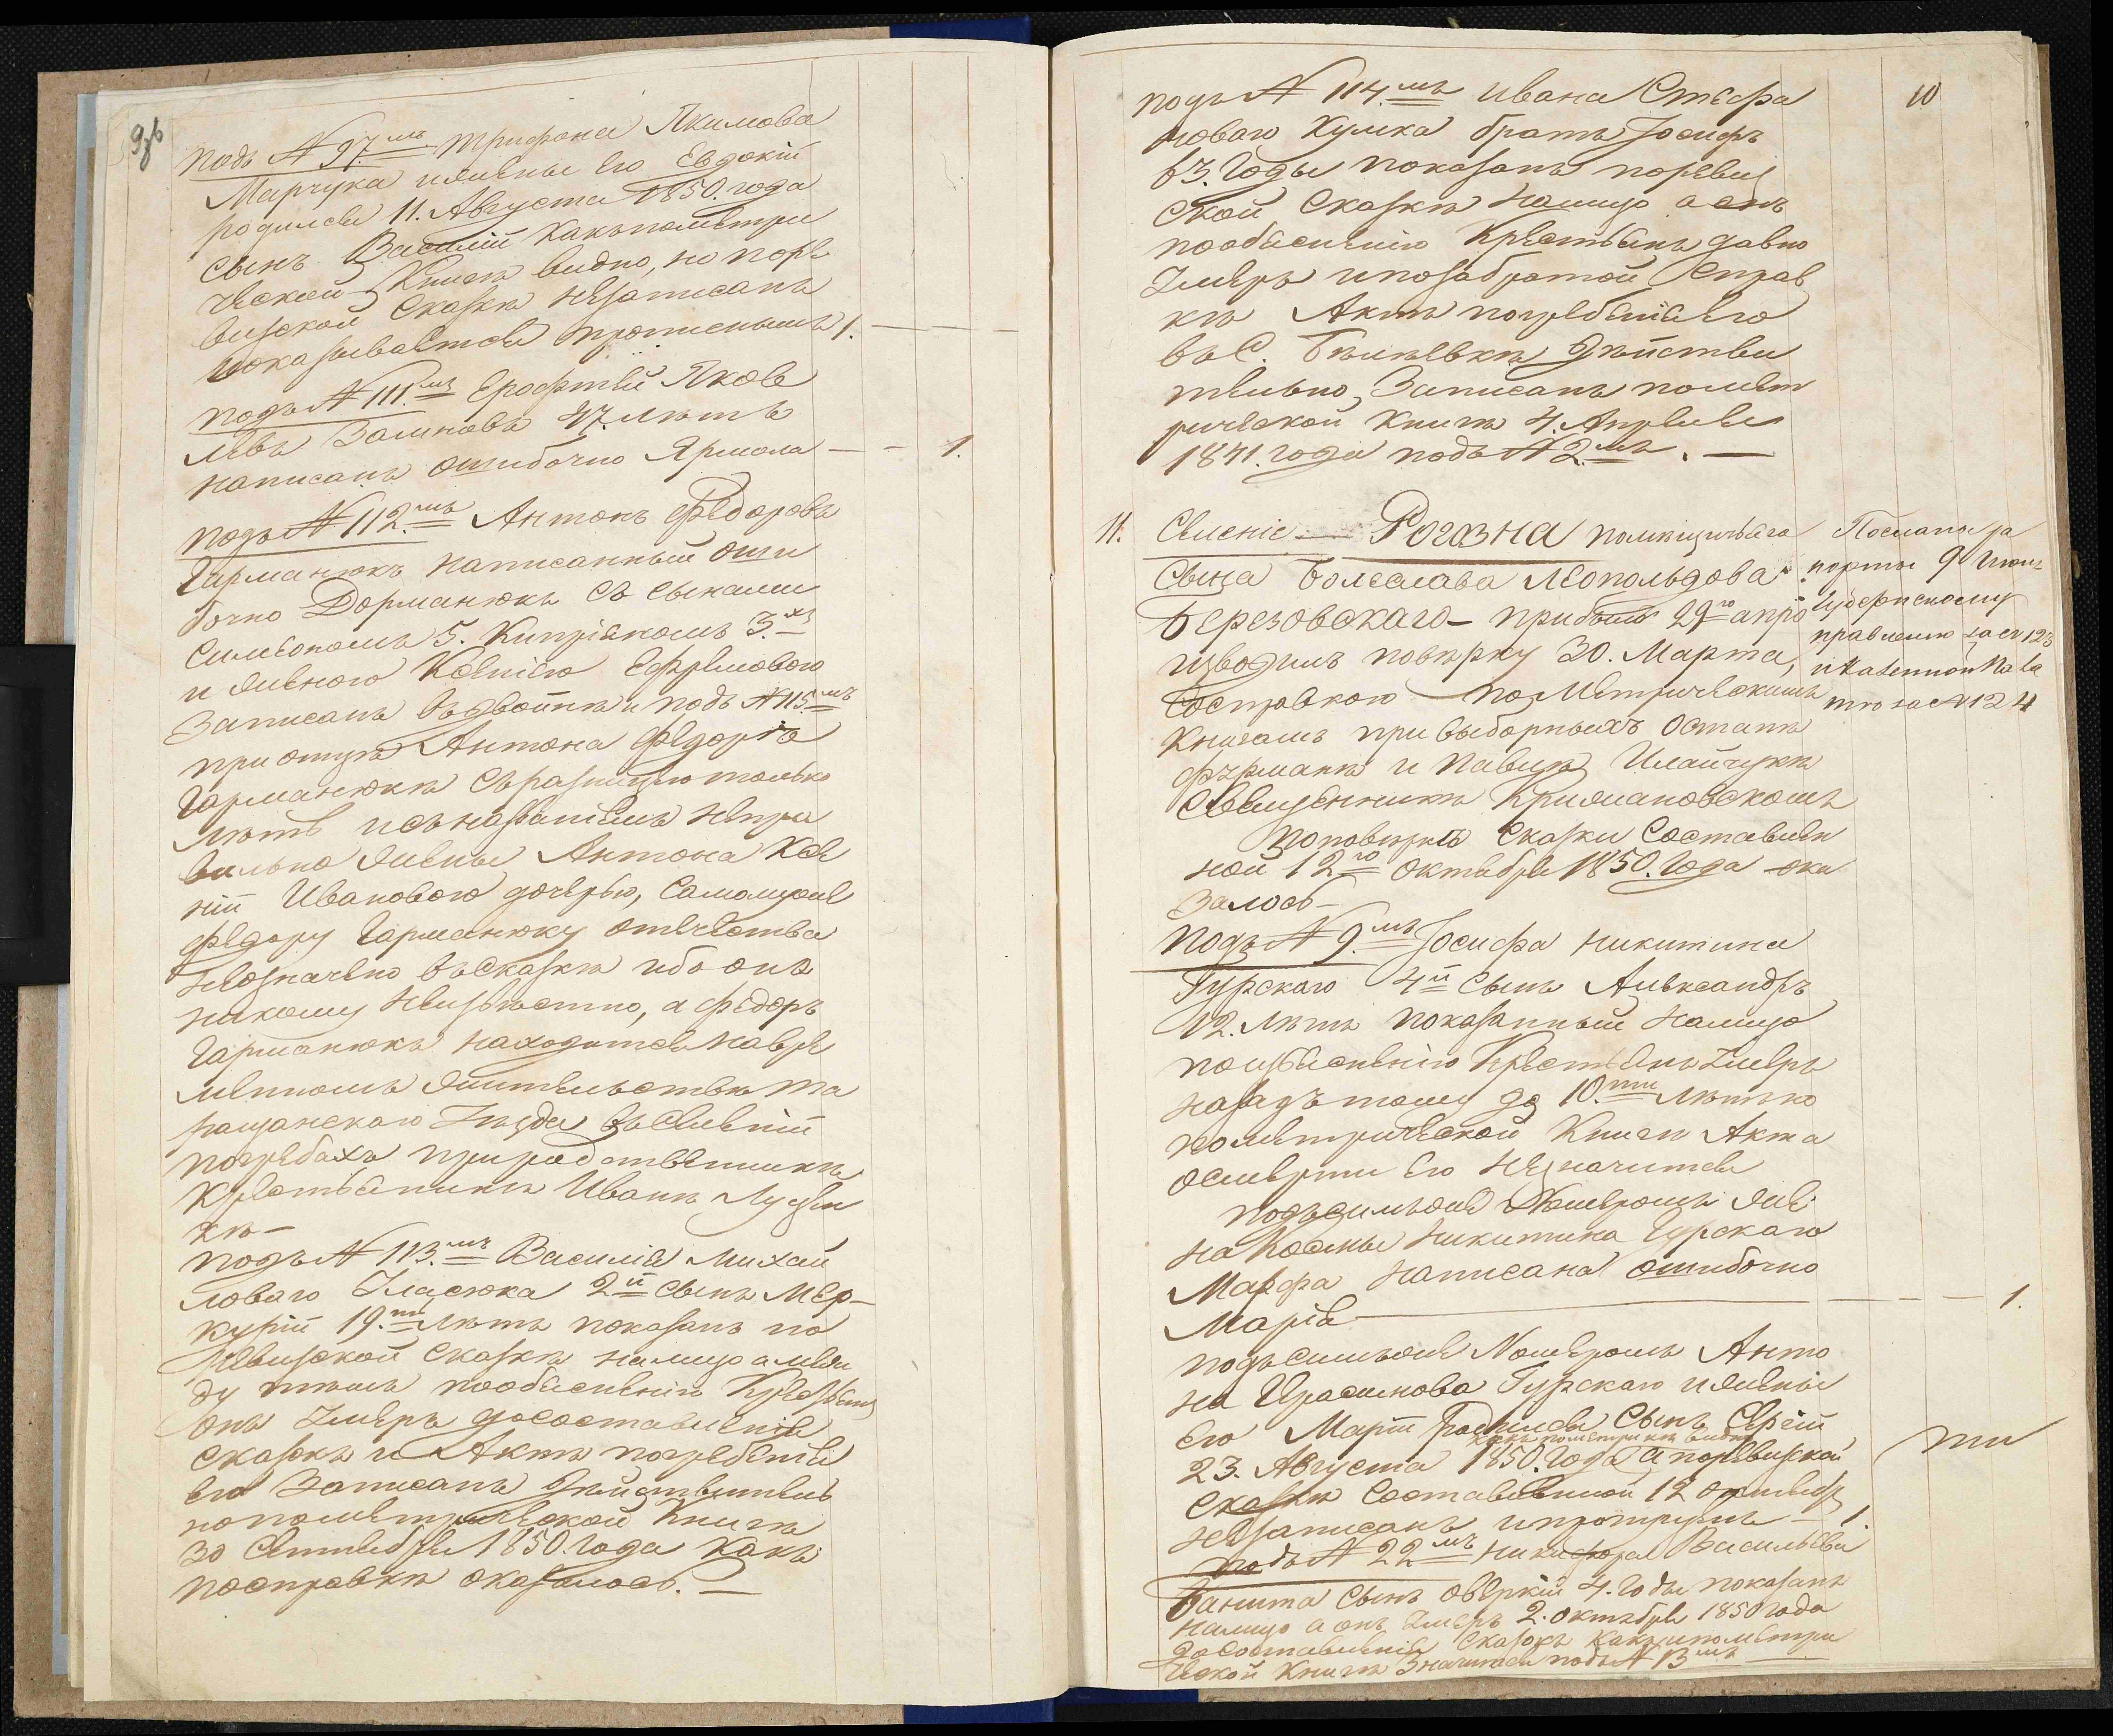 9об
подъ № 97.мъ Трифона Якимова
Марчука и жены его Евдокіи
родился 11. Августа 1850. года
сынъ Василій какъ по метри
ческой Книгѣ видно, но по ре
визской Сказкѣ незаписанъ
показывается прописнымъ 1. — — —
подъ № 111.мъ Ерофтей Яков
левъ Залиховъ 47. лѣтъ
написанъ ошибочно Ярмола — — 1.
подъ № 112.мъ Антонъ Федоровъ
Гарманюкъ написанный оши
бочно Дорманюкъ съ сынами
Симеономъ 5. Кипріяномъ 3.хъ
и женою Ксенією Ефремовою
записанъ вдвойнѣ и подъ № 115.мъ
при отцѣ Антона Федорѣ
Гарманюкѣ съ разницею только
лѣтъ и съ названіемъ непра
вильно жены Антона Ксе
ніи Ивановою дочерью, самому же
Федору Гарманюку отечества
неозначено въ Сказкѣ ибо онъ
никому неизвѣстно, а Федоръ
Гарманюкъ находится на вре
менномъ жительствѣ Та
ращанскаго Уѣзда въ Селеніи
Погребахъ при родственникѣ
Крестьянинѣ Иванѣ
хѣ —
подъ № 113.мъ Василія Михай
ловаго Власюка 2й сынъ Мер-
курій 19.ти лѣтъ показанъ по
Ревизской Сказкѣ налицо а меж
ду тѣмъ по объясненію Крестьянъ
онъ умеръ до составленія
сказокъ и Актъ погребенія
его Записанъ дѣйствитель
но по метрической Книгѣ
30 Сентября 1850. года какъ
по справкѣ оказалось. —
10
подъ № 114.мъ Ивана Стефа
новаго Кулика братъ Іосифъ
63. годы показанъ по ревиз
ской Сказкѣ налицо а онъ
по объясненію Крестьянъ давно
умеръ и по забратой справ
кѣ Актъ погребенія его
въ С. дѣйстви
тельно Записанъ по мет
рической Книгѣ 4. Апрѣля
1841. года подъ № 2.мъ . —
11. Селеніе — Рогозна помѣщичьяго
сына Болеслава Леопольдова
Березовскаго — прибылъ 29го а про
изводилъ повѣрку 30. Марта,
со справкою по Метрическимъ
Книгамъ при выборныхъ Остапѣ
Фурманѣ и Павлѣ Илайчукѣ
Священникѣ Крижановскомъ
По повѣркѣ сказки составлен
ной 12го октября 1850. года ока
залось —
Посланы ра
порты 9 Іюн.
Губернскому
правленію за № 123
и Казенной Пала
тѣ за № 124
Подъ № 9.мъ Іосифа Никитина
Гурскаго 4й сынъ Александръ
12. лѣтъ показанный налицо
по изъясненію Крестьянъ умеръ
назадъ тому до 10.ти лѣтъ но
по метрической Книги Акта
о смерти его незначится
подъ симъ же Номеромъ же
на Космы Никитина Гурскаго
Марфа написана ошибочно
Марія — — — — 1.
подъ симъ же Номеромъ Анто
на Герасимова Гурскаго и жены
его Маріи родился сынъ Сергій
какъ по метрикѣ видно
23. Августа 1850. года а по ревизской
Сказкѣ составленной 12 октября
незаписанъ и пропущенъ — 1.
подъ № 22мъ Никифора Васильева
Банита сынъ Оверкій 4. годы показанъ
налицо а онъ умеръ 2. октября 1850 года
до составленія сказокъ какъ и по метри
ческой Книгѣ Значится подъ № 13мъ —